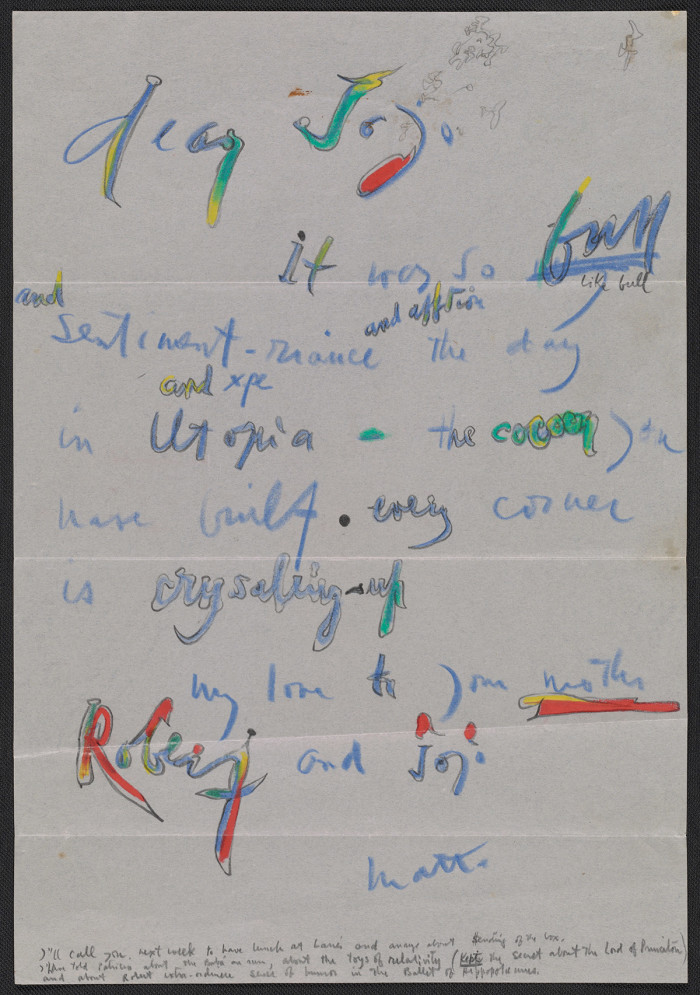 dear Jojo
it was so full
like bull
and
and affction
sentiment-riance the day
and xpe
in Utopia - the cocoon you
have built. every corner
is crysaling-up
my love to your mother
Robert and Jojo
Matta
I"ll call you next week to have lunch at and about sending of the box.
told about the about the Toys of relativity (Kepts the secret about the Lord of Princeton)
and about Robert sense of humor in the Ballet of Hippopotamus.